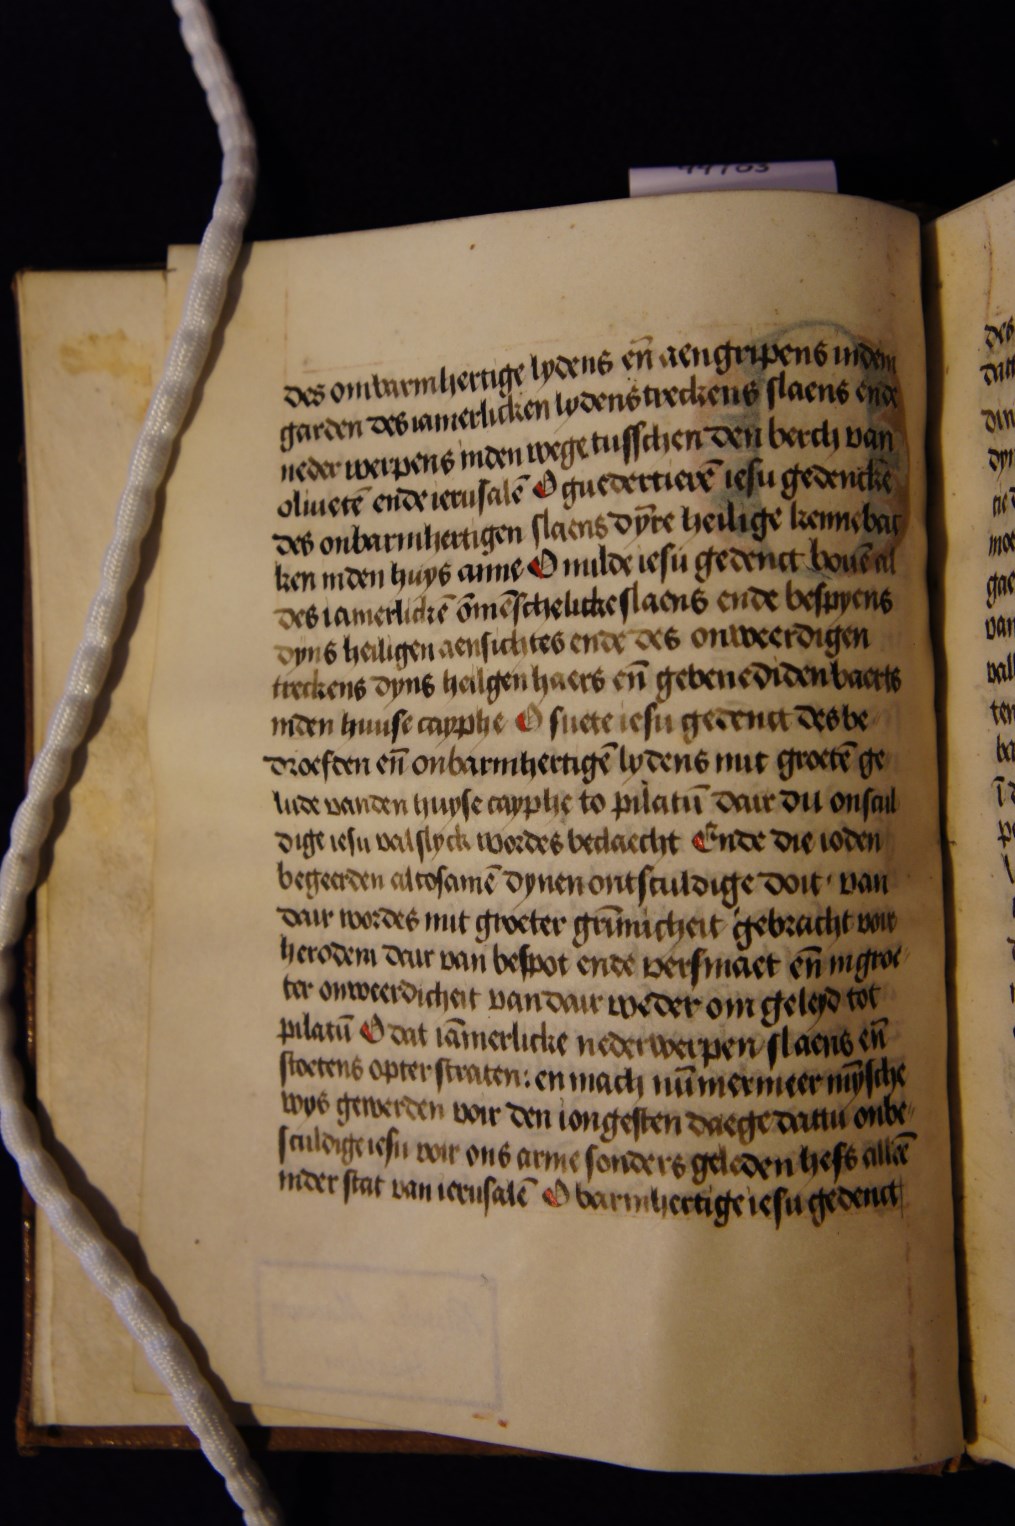 des onbarmhertige lydens en̄ aengripens inden
garden des iamerlicken lydens treckens slaens ende
neder werpens inden wege tusschen den berch van
oliuetē ende ierusalē O guedertierē iesu gedencke
des onbarmhertigen slaens dyre heilige kennebac
ken inden huys anne O milde iesu gedenct bouē al
des iamerlickē ōmēschelicke slaens ende bespyens
dyns heiligen aensichtes ende des onweerdigen
treckens dyns heilgen haers en̄ gebenediden baerts
inden huuse cayphe O suete iesu gedenct des be
droefden en̄ onbarmhertigē lydens mit groetē ge
lude vanden huyse cayphe to pilatū dair du onscul
dige iesu valslyck wordes beclaecht Ende die ioden
begeerden altosamē dynen ontsculdige doit van
dair wordes mit groeter grīmicheit gebracht voir
herodem dair van bespot ende versmaet en̄ in groe
ter onweerdicheit van dair weder om geleyd tot
pilatū O dat iāmerlicke nederwerpen slaens en̄
stoetens opter straten: en mach nūmermeer mȳsche
wys gewerden voir den iongesten daege dattu onbe
sculdige iesu voir ons arme sonders geleden hefs alleē
inder stat van ierusalē O barmhertige iesu gedenct